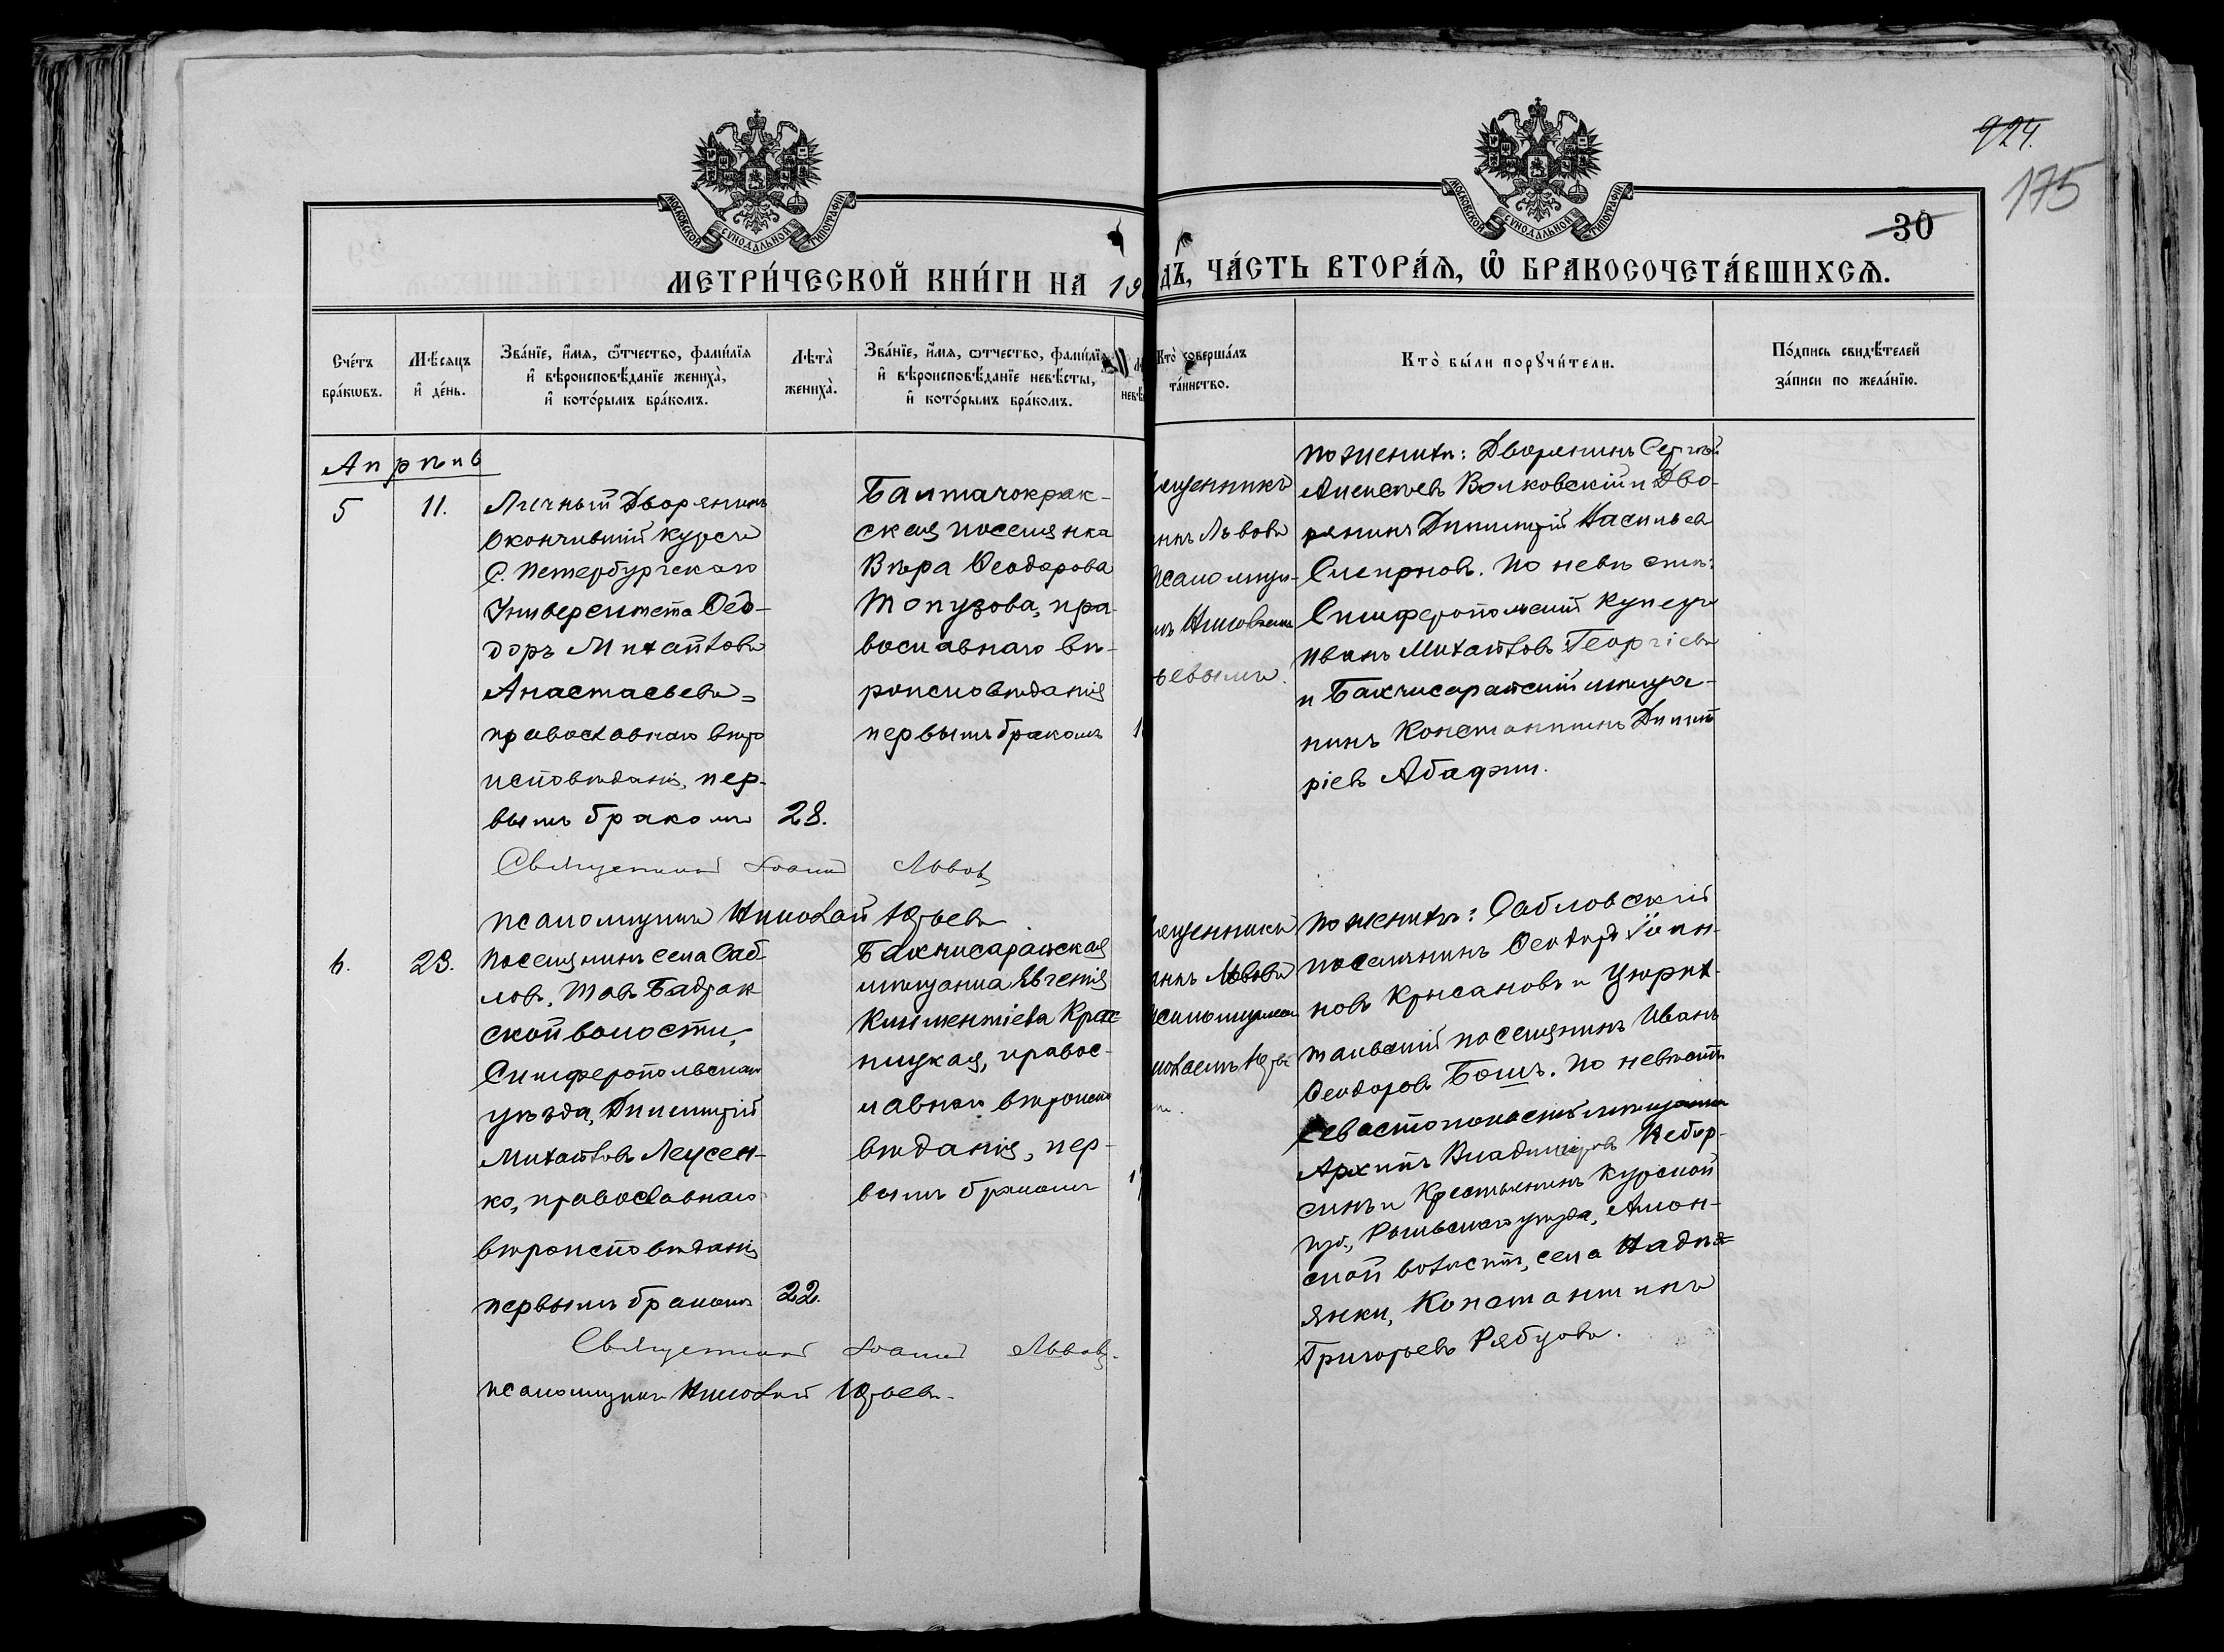 924.
175
МОСКОВСКОЙ СѴНОДАЛЬНОЙ ТИПОГРАФІИ
МОСКОВСКОЙ СѴНОДАЛЬНОЙ ТИПОГРАФІИ
30
МЕТРИ́ЧЕСКОЙ КНИ́ГИ НА 19
ДЪ, ЧА́СТЬ ВТОРА́Ѧ, Ѽ БРАКОСОЧЕТА́ВШИХСѦ.
Сче́тъ бра́кѡвъ.
Мѣ́сяцъ и҆ де́нь.
Зва́нїе, и҆́мя, ѻ҆́тчество, фами́лїя и҆ вѣроисповѣ́данїе жениха̀, и҆ кото́рымъ бра́комъ.
Лѣта̀ жениха̀.
Зва́нїе, и҆́мя, ѻ҆́тчество, фами́лїя и҆ вѣроисповѣ́данїе невѣ́сты, и҆ кото́рымъ бра́комъ.
Кто̀ соверша́лъ та́инство.
Кто̀ бы́ли порꙋчи́тели.
По́дпись свидѣ́телей за́писи по жела́нїю.
Апрѣль
5
11.
Личный Дворянинъ
Окончившій курсъ
С. Петербургскаго
Университета Ѳео-
доръ Михайловъ
Анастасьевъ
православнаго вѣро
исповѣданія, пер-
вымъ бракомъ
28.
Балтачокрак-
ская поселянка
Вѣра Ѳеодорова
Топузова, пра-
вославнаго вѣ-
роисповѣданія
первымъ бракомъ
щенникъ
ннъ Львовъ
псаломщи-
ьевымъ.
по женихѣ: Дворянинъ Сергѣй
Алексѣевъ Волковскій и Дво-
рянинъ Димитрій Васильев
Смирновъ. По невѣстѣ:
Симферопольскій купецъ
Иванъ Михайловъ Георгіевъ
и Бахчисарайскій мѣща-
нинъ Константинъ Димит
ріевъ Абаджи.
Священникъ Іоаннъ Львовъ
псаломщикъ Николай Юрьевъ
6.
23.
Поселянинъ села Саб-
лов, Тав. Бадрак
ской волости,
Симферопольскаго
уѣзда, Димитрій
Михайловъ Леусен-
ко, православнаго
вѣроисповѣданія
первымъ бракомъ
22.
Бахчисарайская
мѣщанка Евгенія
Климентіева Крас-
ницкая, правос-
лавнаго вѣроиспо
вѣданія, пер-
вымъ бракомъ
щенникъ
ннъ Львовъ
колаемъ Юрье
по женихѣ: Сабловскій
поселянинъ Ѳеодоръ Іоан-
новъ Крысановъ и
тальскій поселянинъ Иванъ
Ѳеодоровъ Бошъ. По невѣстѣ
Севастопольскій мѣщанинъ
Архипъ Владиміровъ
синъ и Крестьянинъ Курской
губ., Рыльскаго уѣзда,
ской волости, села
янки, Константинъ
Григорьевъ Рябцовъ.
Священникъ Іоаннъ Львовъ.
псаломщикъ Николай Юрьевъ.